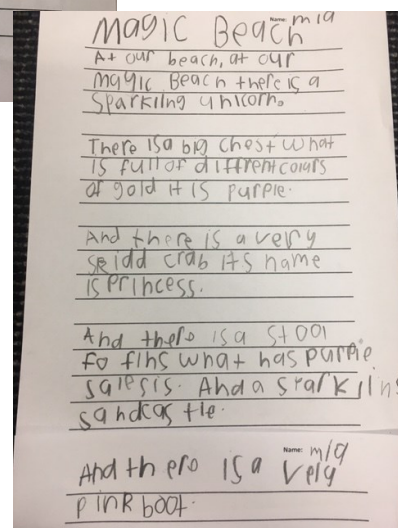 MAgIC BeacH
Name: mia
At our beach, at our
magic Beach there is a
Sparkling unicorn.
There is a big chest what
is full of diffrent colars
of gold it is purple.
And there is a very
skidd crab its name
is Princess.
And there is a stool
fo fihs what has purple
salesis. And a sparkling
sandcastle.
Name: mia
And there is a very
pink boat.